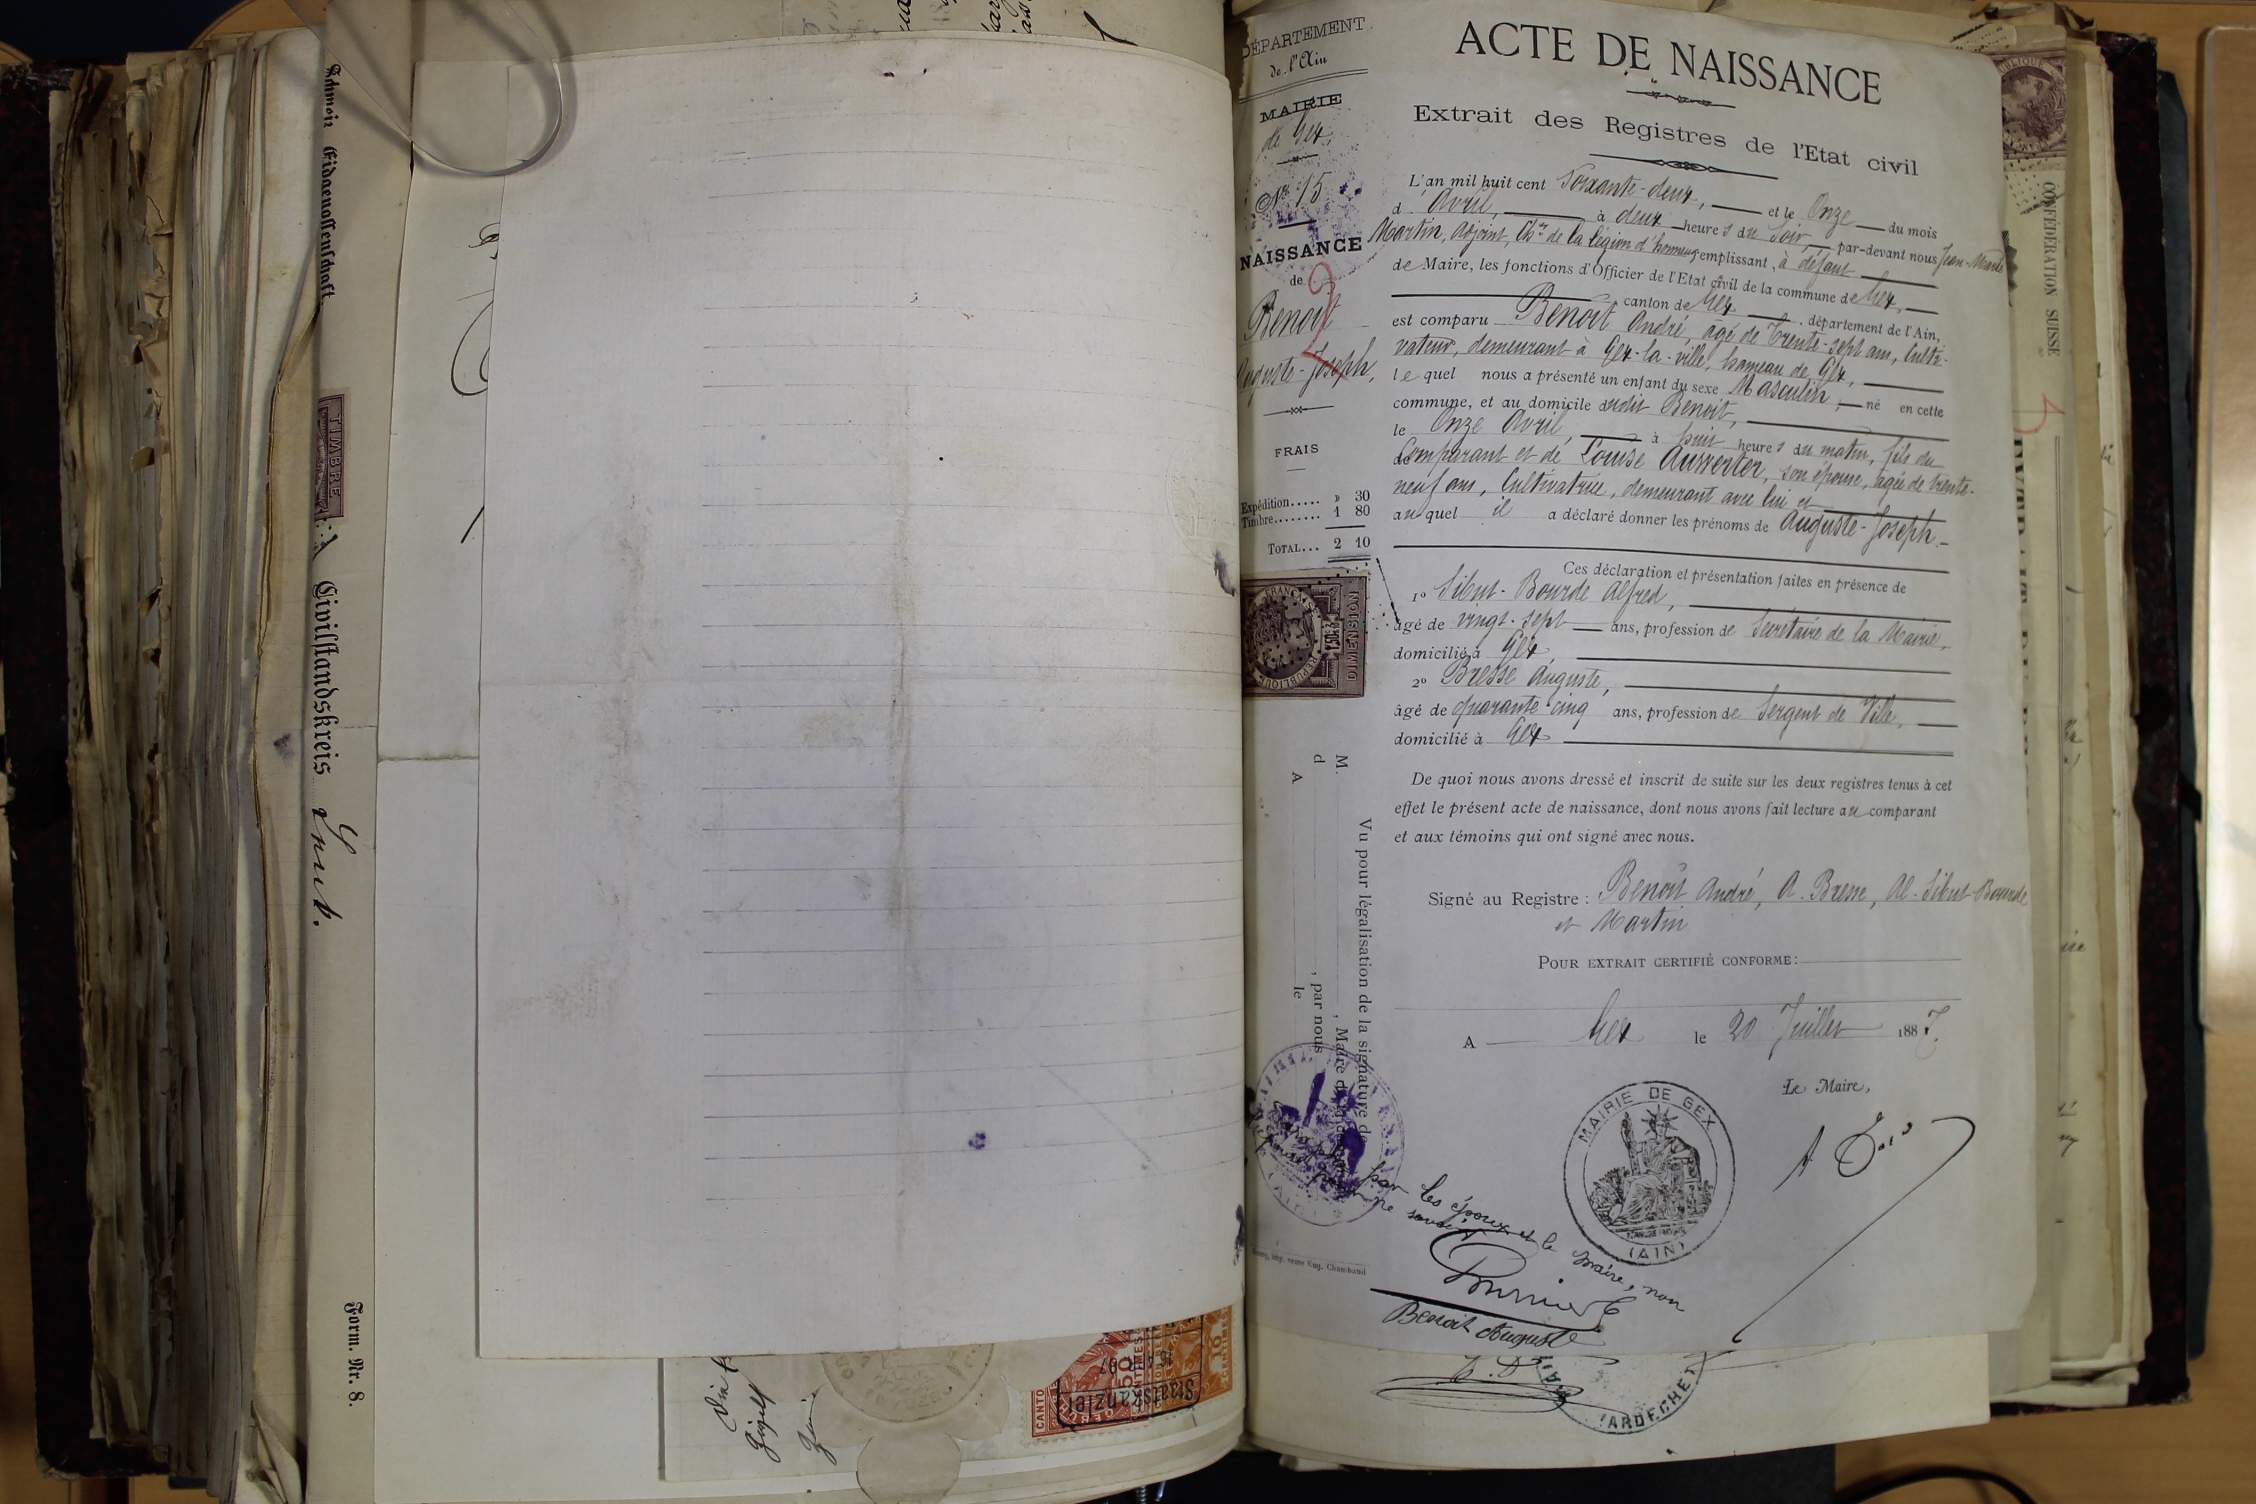 Schweiz. Eidgenossenschaft.
TIMBRE
Civilstandskreis
Form. Nr. 8.
Staatskanzlei
DÉPARTEMENT
de l'Ain
MAIRIE
de Gex
N° 15
NAISSANCE
de
Benoit
Auguste-Joseph,
FRAIS
Expédition..... » 30
Timbre........ 1 80
TOTAL... 2 10
DIMENSION
Vu pour légalisation de la signature de
M. , Maire de la commune
d , par nous
A le
ACTE DE NAISSANCE
Extrait des Registres de l'Etat civil
L'an mil huit cent Soixante-deux, et le Onze du mois
d'Avril, à deux heures du Soir par-devant nous Jean-Marie
Martin, Adjoint, Chr de la légion d'honneur remplissant, à défaut
de Maire, les fonctions d'Officier de l'Etat civil de la commune de Gex,
canton de Gex, département de l'Ain,
est comparu Benoit André, âgé de Trente-sept ans, Culti-
vateur, demeurant à Gex-la-ville, hameau de Gex,
lequel nous a présenté un enfant du sexe Masculin, né en cette
commune, et au domicile dudit Benoit,
le Onze Avril, à huit heures du matin, fils du
Comparant et de Louise son épouse, âgée de trente-
neuf ans, Cultivatrice, demeurant avec lui et
auquel il a déclaré donner les prénoms de Auguste-Joseph
Ces déclaration et présentation faites en présence de
1° Sibut-Bourde Alfred,
âgé de vingt-sept ans, profession de Secrétaire de la Mairie,
domicilié à Gex,
2° Bresse Auguste,
âgé de quarante-cinq ans, profession de Sergent de Ville,
domicilié à Gex
De quoi nous avons dressé et inscrit de suite sur les deux registres tenus à cet
effet le présent acte de naissance, dont nous avons fait lecture au comparant
et aux témoins qui ont signé avec nous.
Signé au Registre : Benoit André, A. Bresse, Al. Sibut-Bourde
et Martin
POUR EXTRAIT CERTIFIÉ CONFORME :
A Gex le 20 Juillet 1887.
Le Maire,
MAIRIE DE GEX
(AIN)
par les époux et le maire, non
Benoit Auguste
(ARDECHE)
CONFÉDÉRATION SUISSE